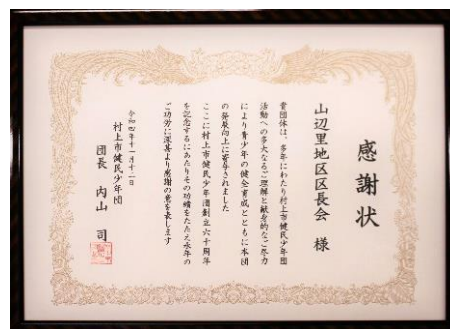 感謝状
山辺里地区区長会 様
貴団体は、多年にわたり村上市健民少年団
活動への多大なるご理解と献身的なご尽力
により青少年の健全育成とともに本団
の発展向上に寄与されました
ここに村上市健民少年団創立六十周年
を記念するにあたりその功績をたたえ永年の
ご功労に深甚より感謝の意を表します
令和四年十一月十二日
村上市健民少年団
団長 内山 司